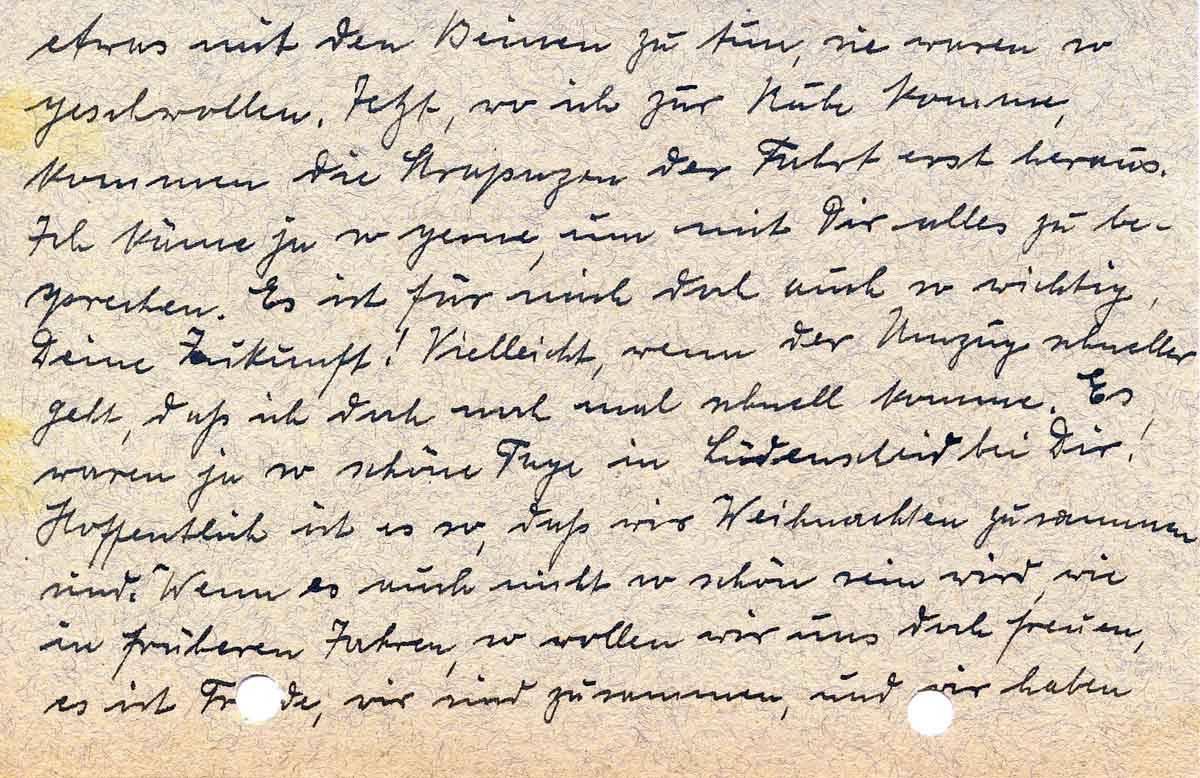 etwas mit den Beinen zu tun, sie waren so
geschwollen. Jetzt, wo ich zur Ruhe komme,
kommen die Strapazen der Fahrt erst heraus.
Ich käme ja so gerne, um mit Dir alles zu be-
sprechen. Es ist für mich doch auch so wichtig,
Deine Zukunft! Vielleicht, wenn der Umzug schneller
geht, daß ich doch noch mal schnell komme. Es
waren ja so schöne Tage in Lüdenscheid bei Dir!
Hoffentlich ist es so, daß wir Weihnachten zusammen
sind. Wenn es auch nicht so schön sein wird, wie
in früheren Jahren, so wollen wir uns doch freuen,
es ist Fr de, wir sind zusammen, und wir haben